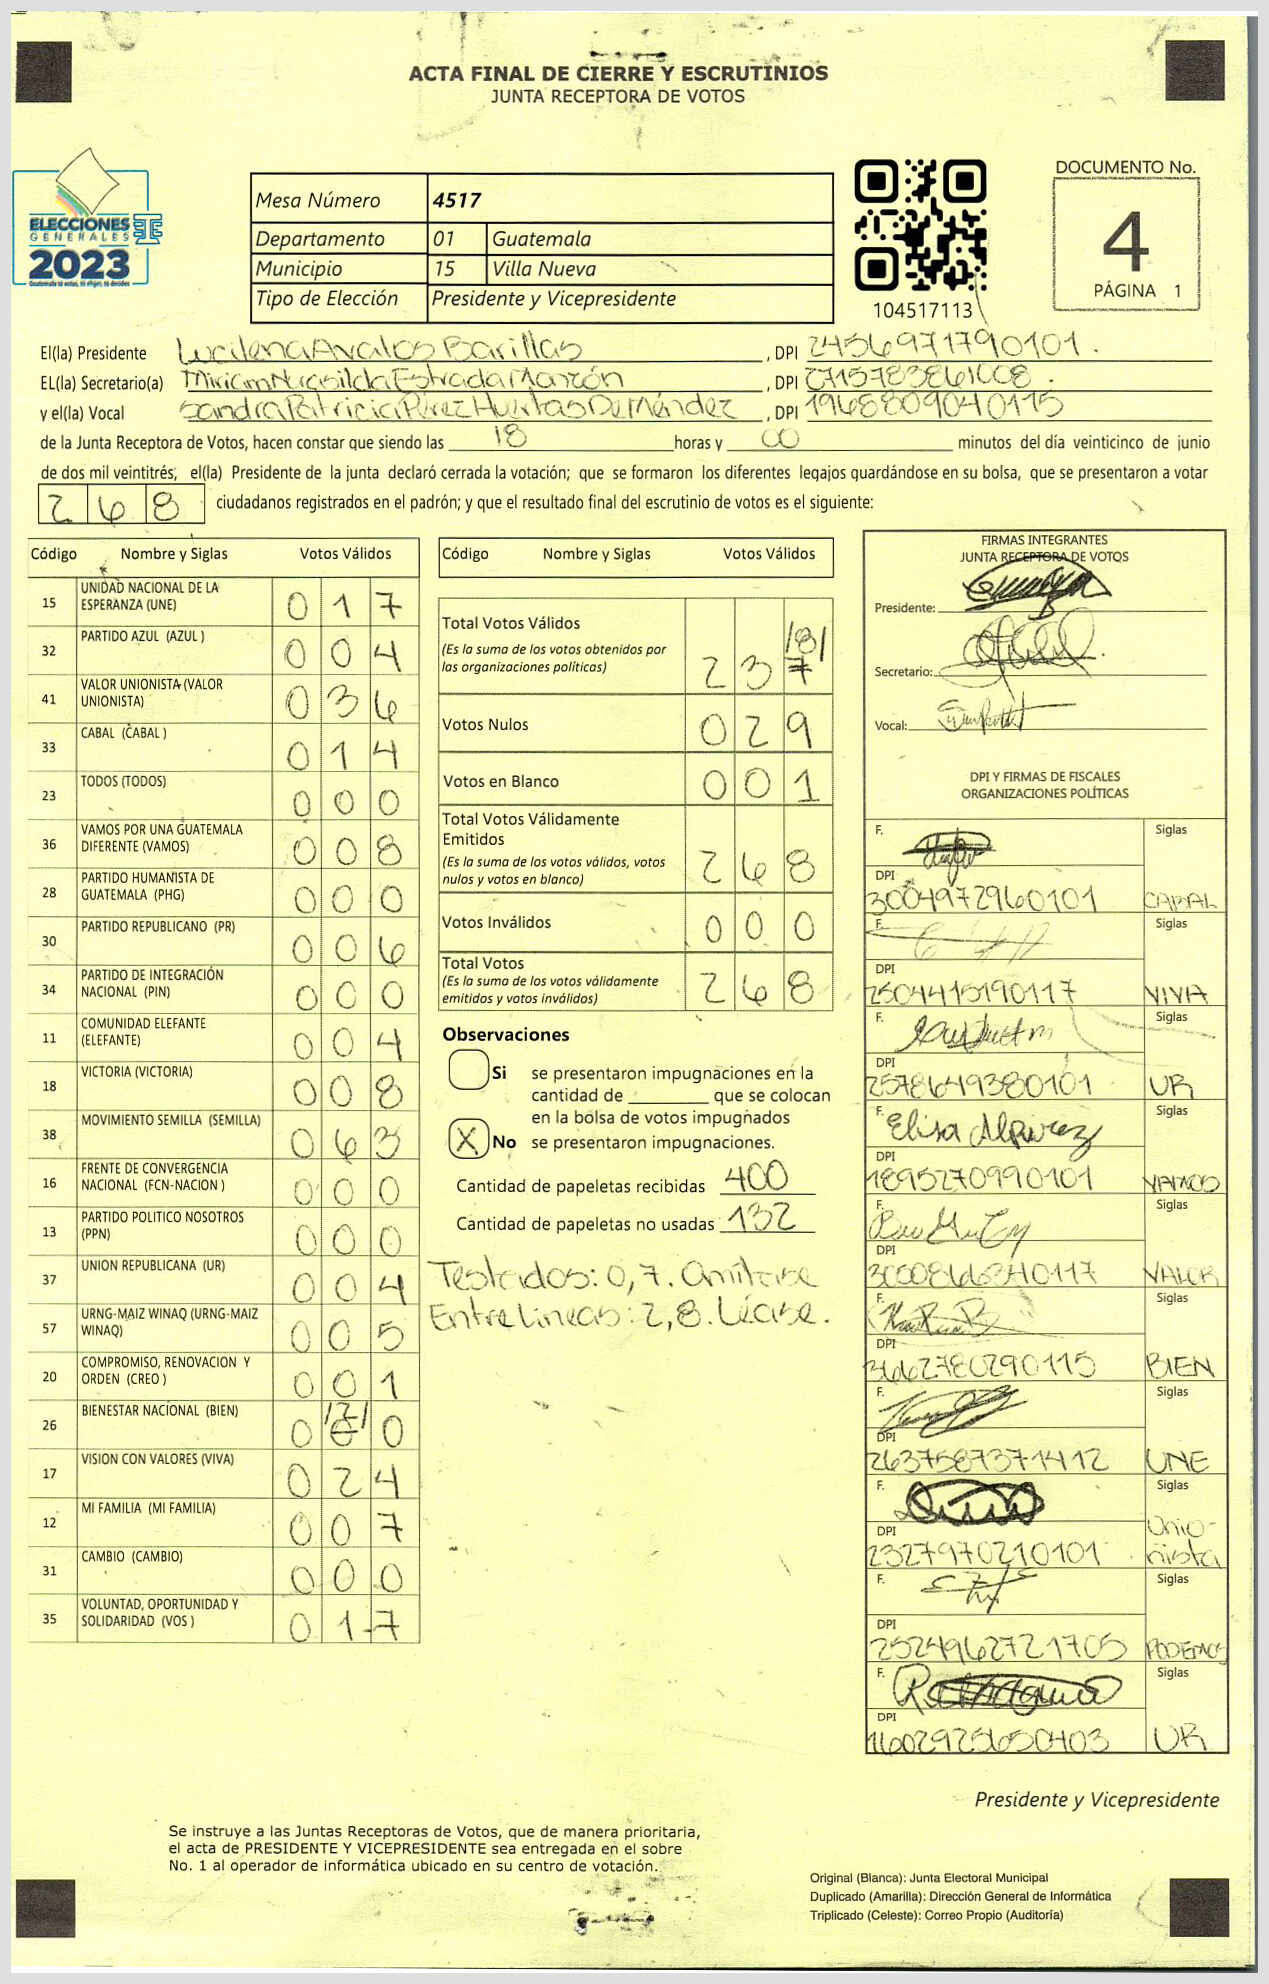 ACTA FINAL DE CIERRE Y ESCRUTINIOS
JUNTA RECEPTORA DE VOTOS
ELECCIONES
GENERALES
2023
Mesa Número 4517
Departamento 01 Guatemala
Municipio 15 Villa Nueva
Tipo de Elección Presidente y Vicepresidente
104517113
DOCUMENTO No.
4
PÁGINA 1
El(la) Presidente Lucilena Avalos Barillas, DPI 2456971790101.
EL(la) Secretario(a) Miriam Nurasilda Estrada Monzón, DPI 2715783861008.
y el(la) Vocal Sandra Patricia Pérez Huertas De Méndez, DPI 1968809040115
de la Junta Receptora de Votos, hacen constar que siendo las 18 horas y 00 minutos del día veinticinco de junio
de dos mil veintitrés, el(la) Presidente de la junta declaró cerrada la votación; que se formaron los diferentes legajos quardándose en su bolsa, que se presentaron a votar
268 ciudadanos registrados en el padrón; y que el resultado final del escrutinio de votos es el siguiente:
Código Nombre y Siglas Votos Válidos
15 UNIDAD NACIONAL DE LA ESPERANZA (UNE) 017
32 PARTIDO AZUL (AZUL ) 004
41 VALOR UNIONISTA (VALOR UNIONISTA) 036
33 CABAL (CABAL ) 014
23 TODOS (TODOS) 000
36 VAMOS POR UNA GUATEMALA DIFERENTE (VAMOS) 008
28 PARTIDO HUMANISTA DE GUATEMALA (PHG) 000
30 PARTIDO REPUBLICANO (PR) 006
34 PARTIDO DE INTEGRACIÓN NACIONAL (PIN) 000
11 COMUNIDAD ELEFANTE (ELEFANTE) 004
18 VICTORIA (VICTORIA) 008
38 MOVIMIENTO SEMILLA (SEMILLA) 063
16 FRENTE DE CONVERGENCIA NACIONAL (FCN-NACION ) 000
13 PARTIDO POLITICO NOSOTROS (PPN) 000
37 UNION REPUBLICANA (UR) 004
57 URNG-MAIZ WINAQ (URNG-MAIZ WINAQ) 005
20 COMPROMISO, RENOVACION Y ORDEN (CREO ) 001
26 BIENESTAR NACIONAL (BIEN) 0 /2/ 0 0
17 VISION CON VALORES (VIVA) 024
12 MI FAMILIA (MI FAMILIA) 007
31 CAMBIO (CAMBIO) 000
35 VOLUNTAD, OPORTUNIDAD Y SOLIDARIDAD (VOS ) 017
Código Nombre y Siglas Votos Válidos
Total Votos Válidos
(Es la suma de los votos obtenidos por
las organizaciones políticas) 237 /8/
Votos Nulos 029
Votos en Blanco 001
Total Votos Válidamente
Emitidos
(Es la suma de los votos válidos, votos
nulos y votos en blanco) 268
Votos Inválidos 000
Total Votos
(Es la suma de los votos válidamente
emitidos y votos inválidos) 268
Observaciones
Si se presentaron impugnaciones en la
cantidad de ________ que se colocan
en la bolsa de votos impugnados
X No se presentaron impugnaciones.
Cantidad de papeletas recibidas 400
Cantidad de papeletas no usadas 132
Testados: 0,7. Omítase
Entre lineas: 2,8. Léase.
FIRMAS INTEGRANTES
JUNTA RECEPTORA DE VOTOS
Presidente:
Secretario:
Vocal:
DPI Y FIRMAS DE FISCALES
ORGANIZACIONES POLÍTICAS
F. Siglas
DPI
3004972960101 CABAL
F. Siglas
DPI
2504415190117 VIVA
F. Siglas
DPI
2578649380101 UR
F. Elisa Alpirez Siglas
DPI
1895270990101 VAMOS
F. Siglas
DPI
3000866340117 VALOR
F. Siglas
DPI
3662780290115 BIEN
F. Siglas
DPI
2637587371412 UNE
F. Siglas
DPI Unio-
2327970210101 nista
F. Siglas
DPI
2524962721705 PODEMOS
F. Siglas
DPI
1602925650403 UR
Presidente y Vicepresidente
Se instruye a las Juntas Receptoras de Votos, que de manera prioritaria,
el acta de PRESIDENTE Y VICEPRESIDENTE sea entregada en el sobre
No. 1 al operador de informática ubicado en su centro de votación.
Original (Blanca): Junta Electoral Municipal
Duplicado (Amarilla): Dirección General de Informática
Triplicado (Celeste): Correo Propio (Auditoría)